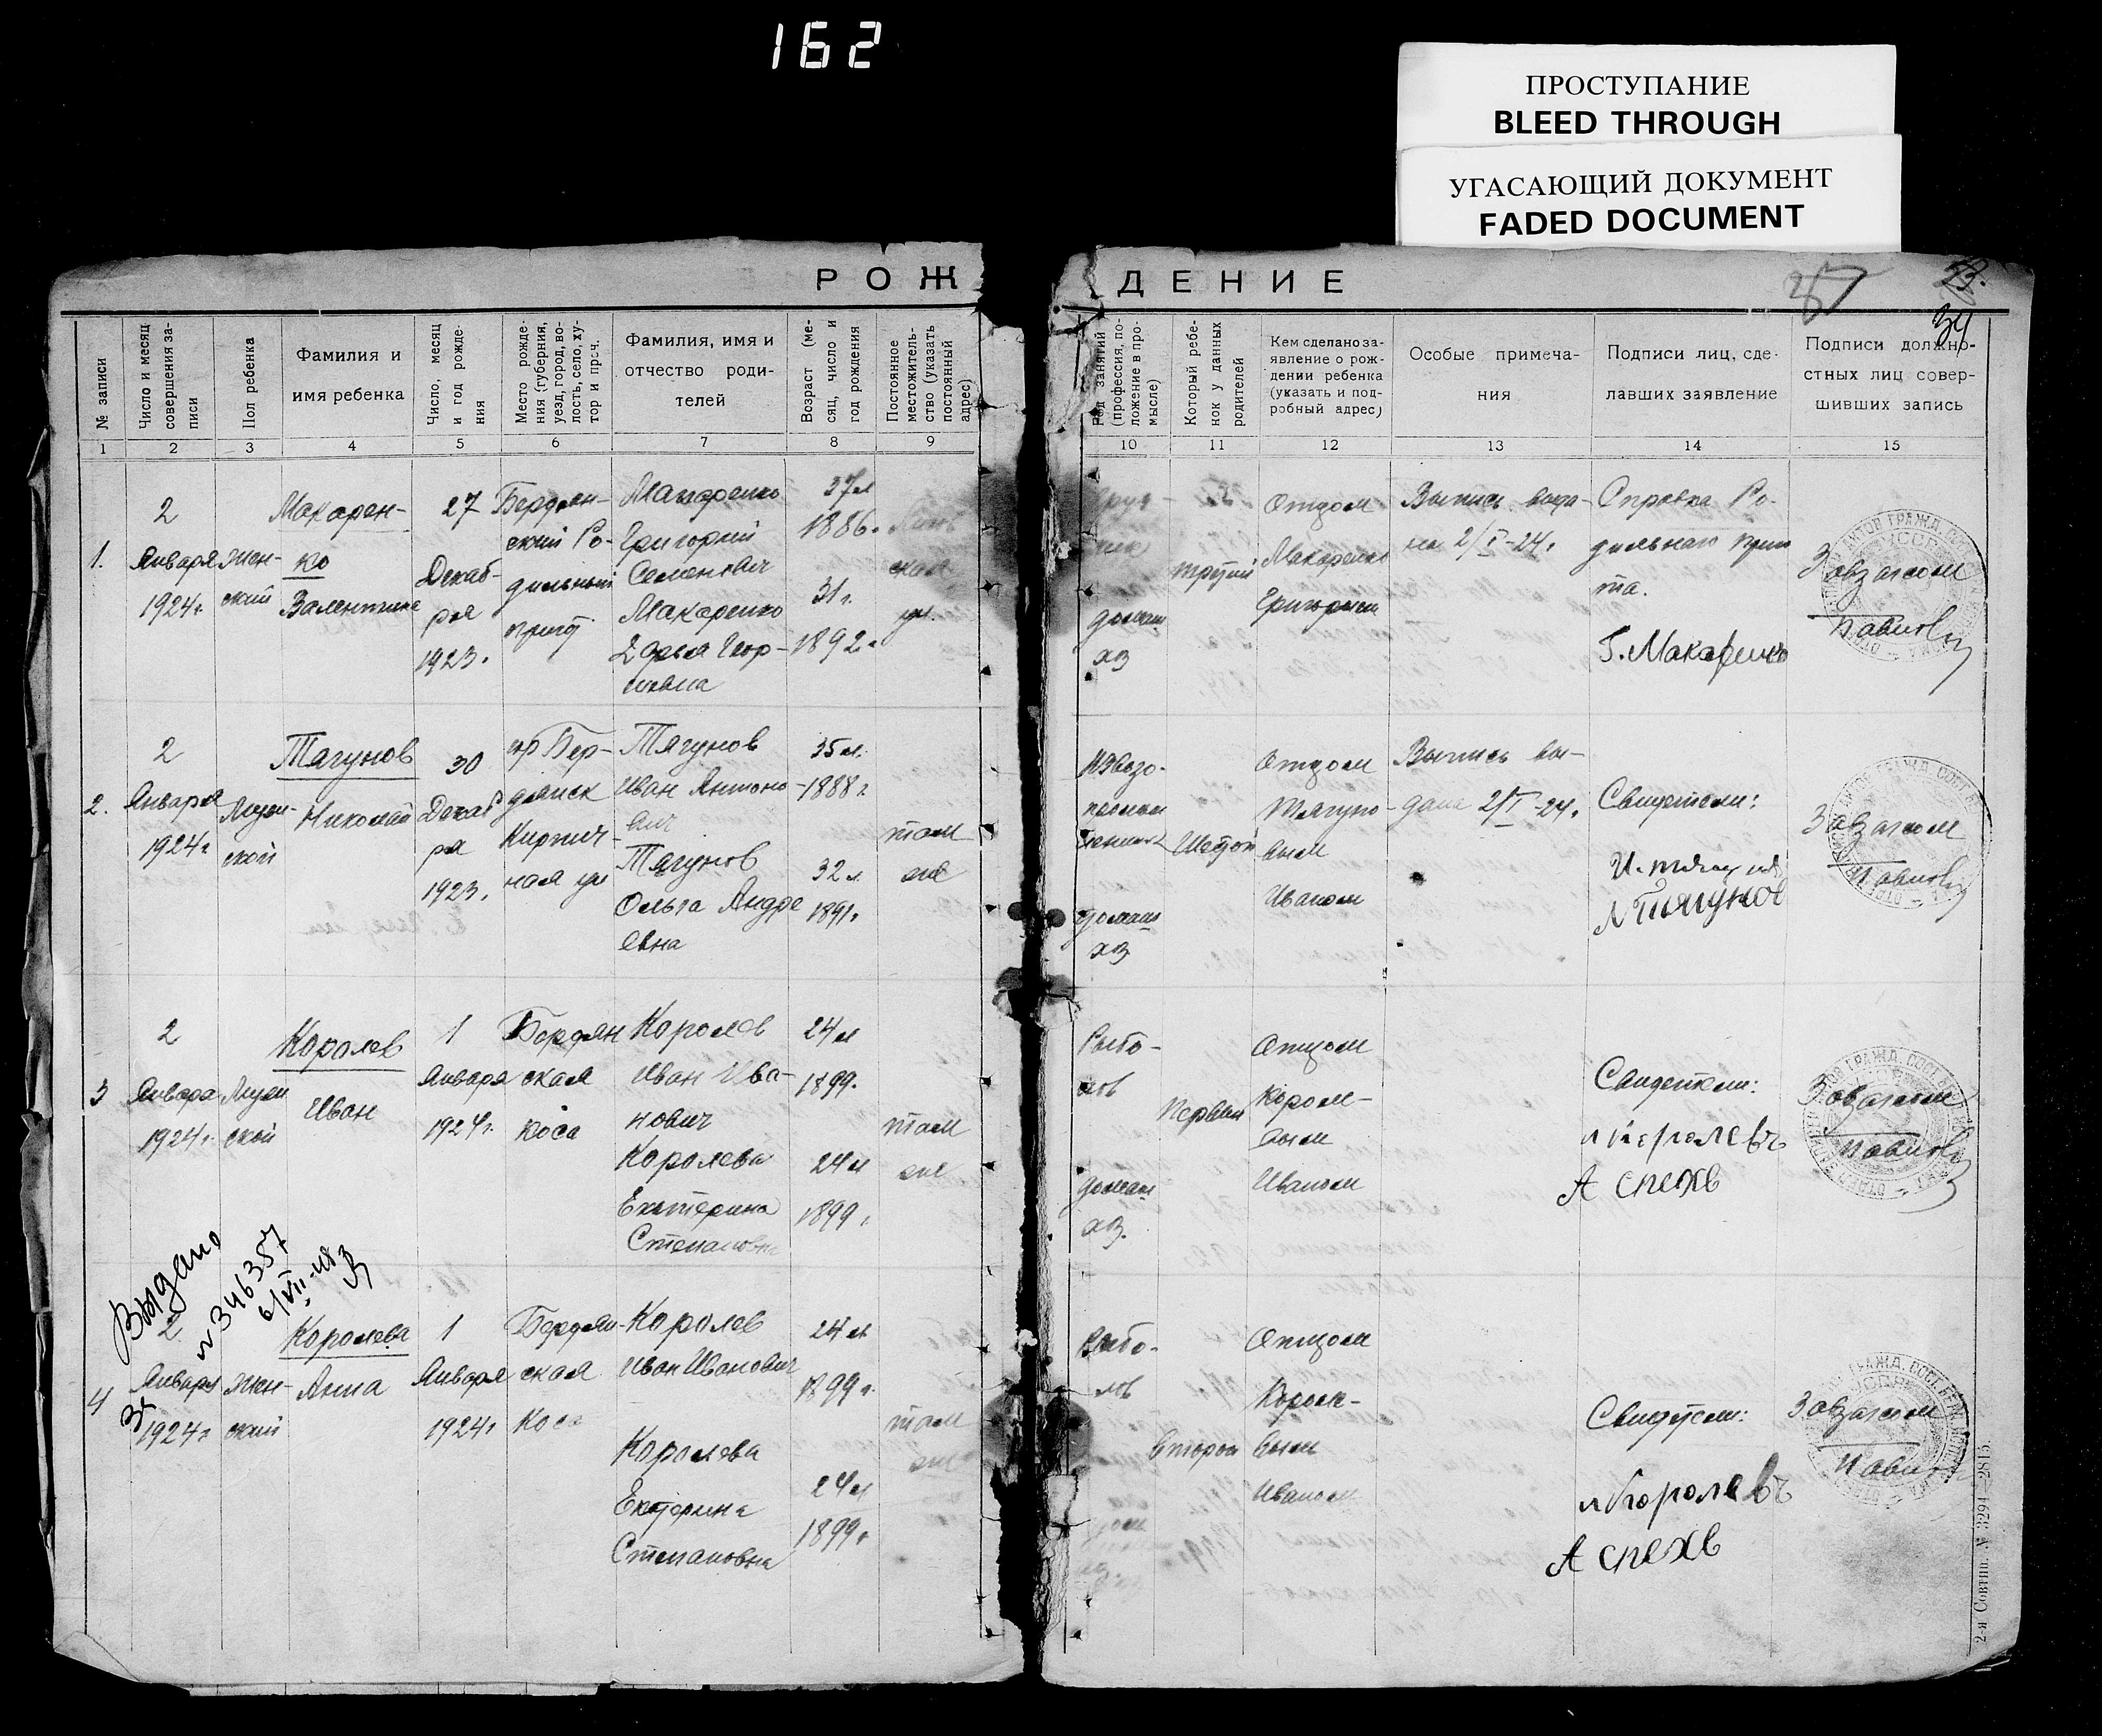 162
ПРОСТУПАНИЕ
BLEED THROUGH
УГАСАЮЩИЙ ДОКУМЕНТ
FADED DOCUMENT
РОЖДЕНИЕ
34
№ записи
Число и месяц совершения записи
Пол ребенка
Фамилия и
имя ребенка
Число, месяц и год рождения
Место рождения (губерния, уезд, город, волость, село, хутор и проч.
Фамилия, имя и
отчество роди-
телей
Возраст (месяц, число и год рождения
Постоянное местожительство (указать постоянный адрес)
Род занятий (профессия, положение в промысле)
Который ребенок у данных родителей
Кем сделано за-
явление о рож-
дении ребенка
(указать и под-
робный адрес)
Особые примеча-
ния
Подписи лиц, сде-
лавших заявление
Подписи должно-
стных лиц совер-
шивших запись
1 2 3 4 5 6 7 8 9 10 11 12 13 14 15
1.
2
Января
1924г.
жен-
ский
Макарен-
ко
Валентина
27
Декаб-
ря
1923.
Бердян-
ский Ро-
дильный
приют
Макаренко
Григорий
Семенович
Макаренко
Дарья Геор-
гиевна
37л
1886.
31г.
1892.
ская
ул.
домаш
хз
третий
Отцом
Макаренко
Григорием
Выпись выда-
на 2/I-24г.
Справка Ро-
дильнаго прию
та.
Г. Макаренко
Завзагсом
2.
2
Января
1924г
Муж-
ской
Тягунов
Николай
30
Декаб
ря
1923.
гор Бер-
дянск
Кирпич-
ная ул
Тягунов
Иван Антоно-
вич
Тягунов
Ольга Андре
евна
35л.
1888г
32л
1891.
там
же
домаш
хз
Шестой
Отцом
Тягуно-
вым
Иваном
Выпись вы-
дана 2/I-24г.
Свидетели:
Тягунов
Завзагсом
3
2
Января
1924г.
Муж
ской
Королев
Иван
1
Января
1924г.
Бердян
ская
коса
Королев
Иван Ива-
нович
Королева
Екатерина
Степановна
24л
1899.
24л
1899г
там
же
Рыбо-
лов
домаш
хз.
Первый
Отцом
Короле-
вым
Иваном
Свидетели:
и Королевъ
А Спехв
Завзагсом
Выдано
№346357
6/VII-48
4
2
Января
1924г
жен-
ский
Королева
Анна
1
Января
1924г
Бердян-
ская
Коса
Королев
Иван Иванович
Королева
Екатерина
Степановна
24л
1899г.
24л
1899г
там
же
Рыбо-
лов
второй
Отцом
Короле-
вым
Иваном
Свидетели:
и Королевъ
А Спехв
Завзагсом
2-я Совтип. № 3294—2815.